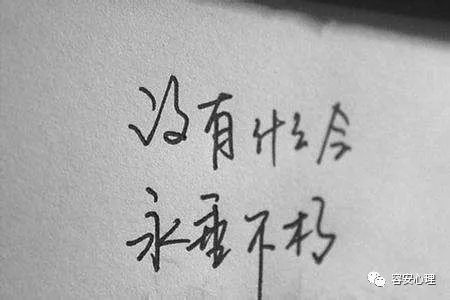 没有什么会
永垂不朽
容安心理